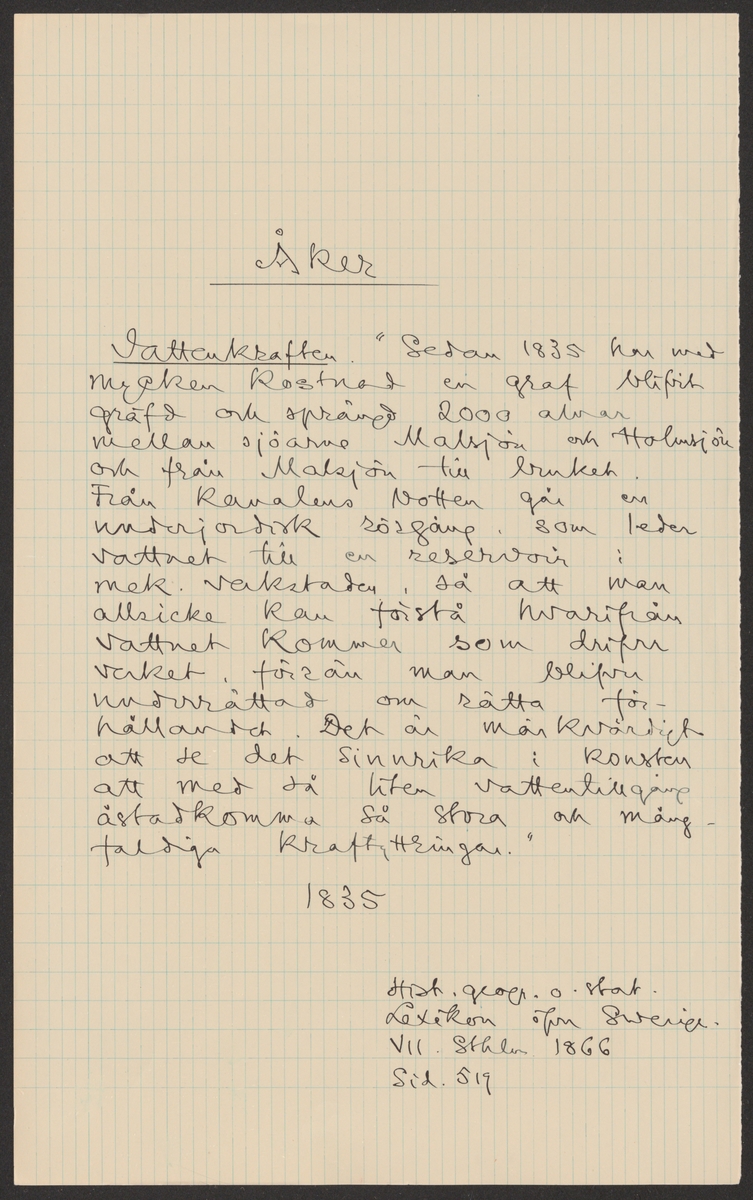 Åker
Vattenkraften. "Sedan 1835 har med
mycken kostnad en graf blifvit
gräfd och sprängd 2000 alnar
mellan sjöarne Malsjön och Holmsjön
och från Malsjön till bruket.
Från kanalens botten går en
underjordisk rörgång, som leder
vattnet till en reservoir i
mek. verkstaden, så att man
allsicke kan förstå hvarifrån
vattnet kommer som drifver
verket, förrän man blifver
underrättad om rätta för-
hållandet. Det är märkvärdigt
att se det sinnrika i konsten
att med så liten vattentillgång
åstadkomma så stora och mång-
faldiga kraftyttringar."
1835
Hist. geogr. o. stat.
Lexikon öfver Sverige.
VII. Sthlm 1866
Sid. 519